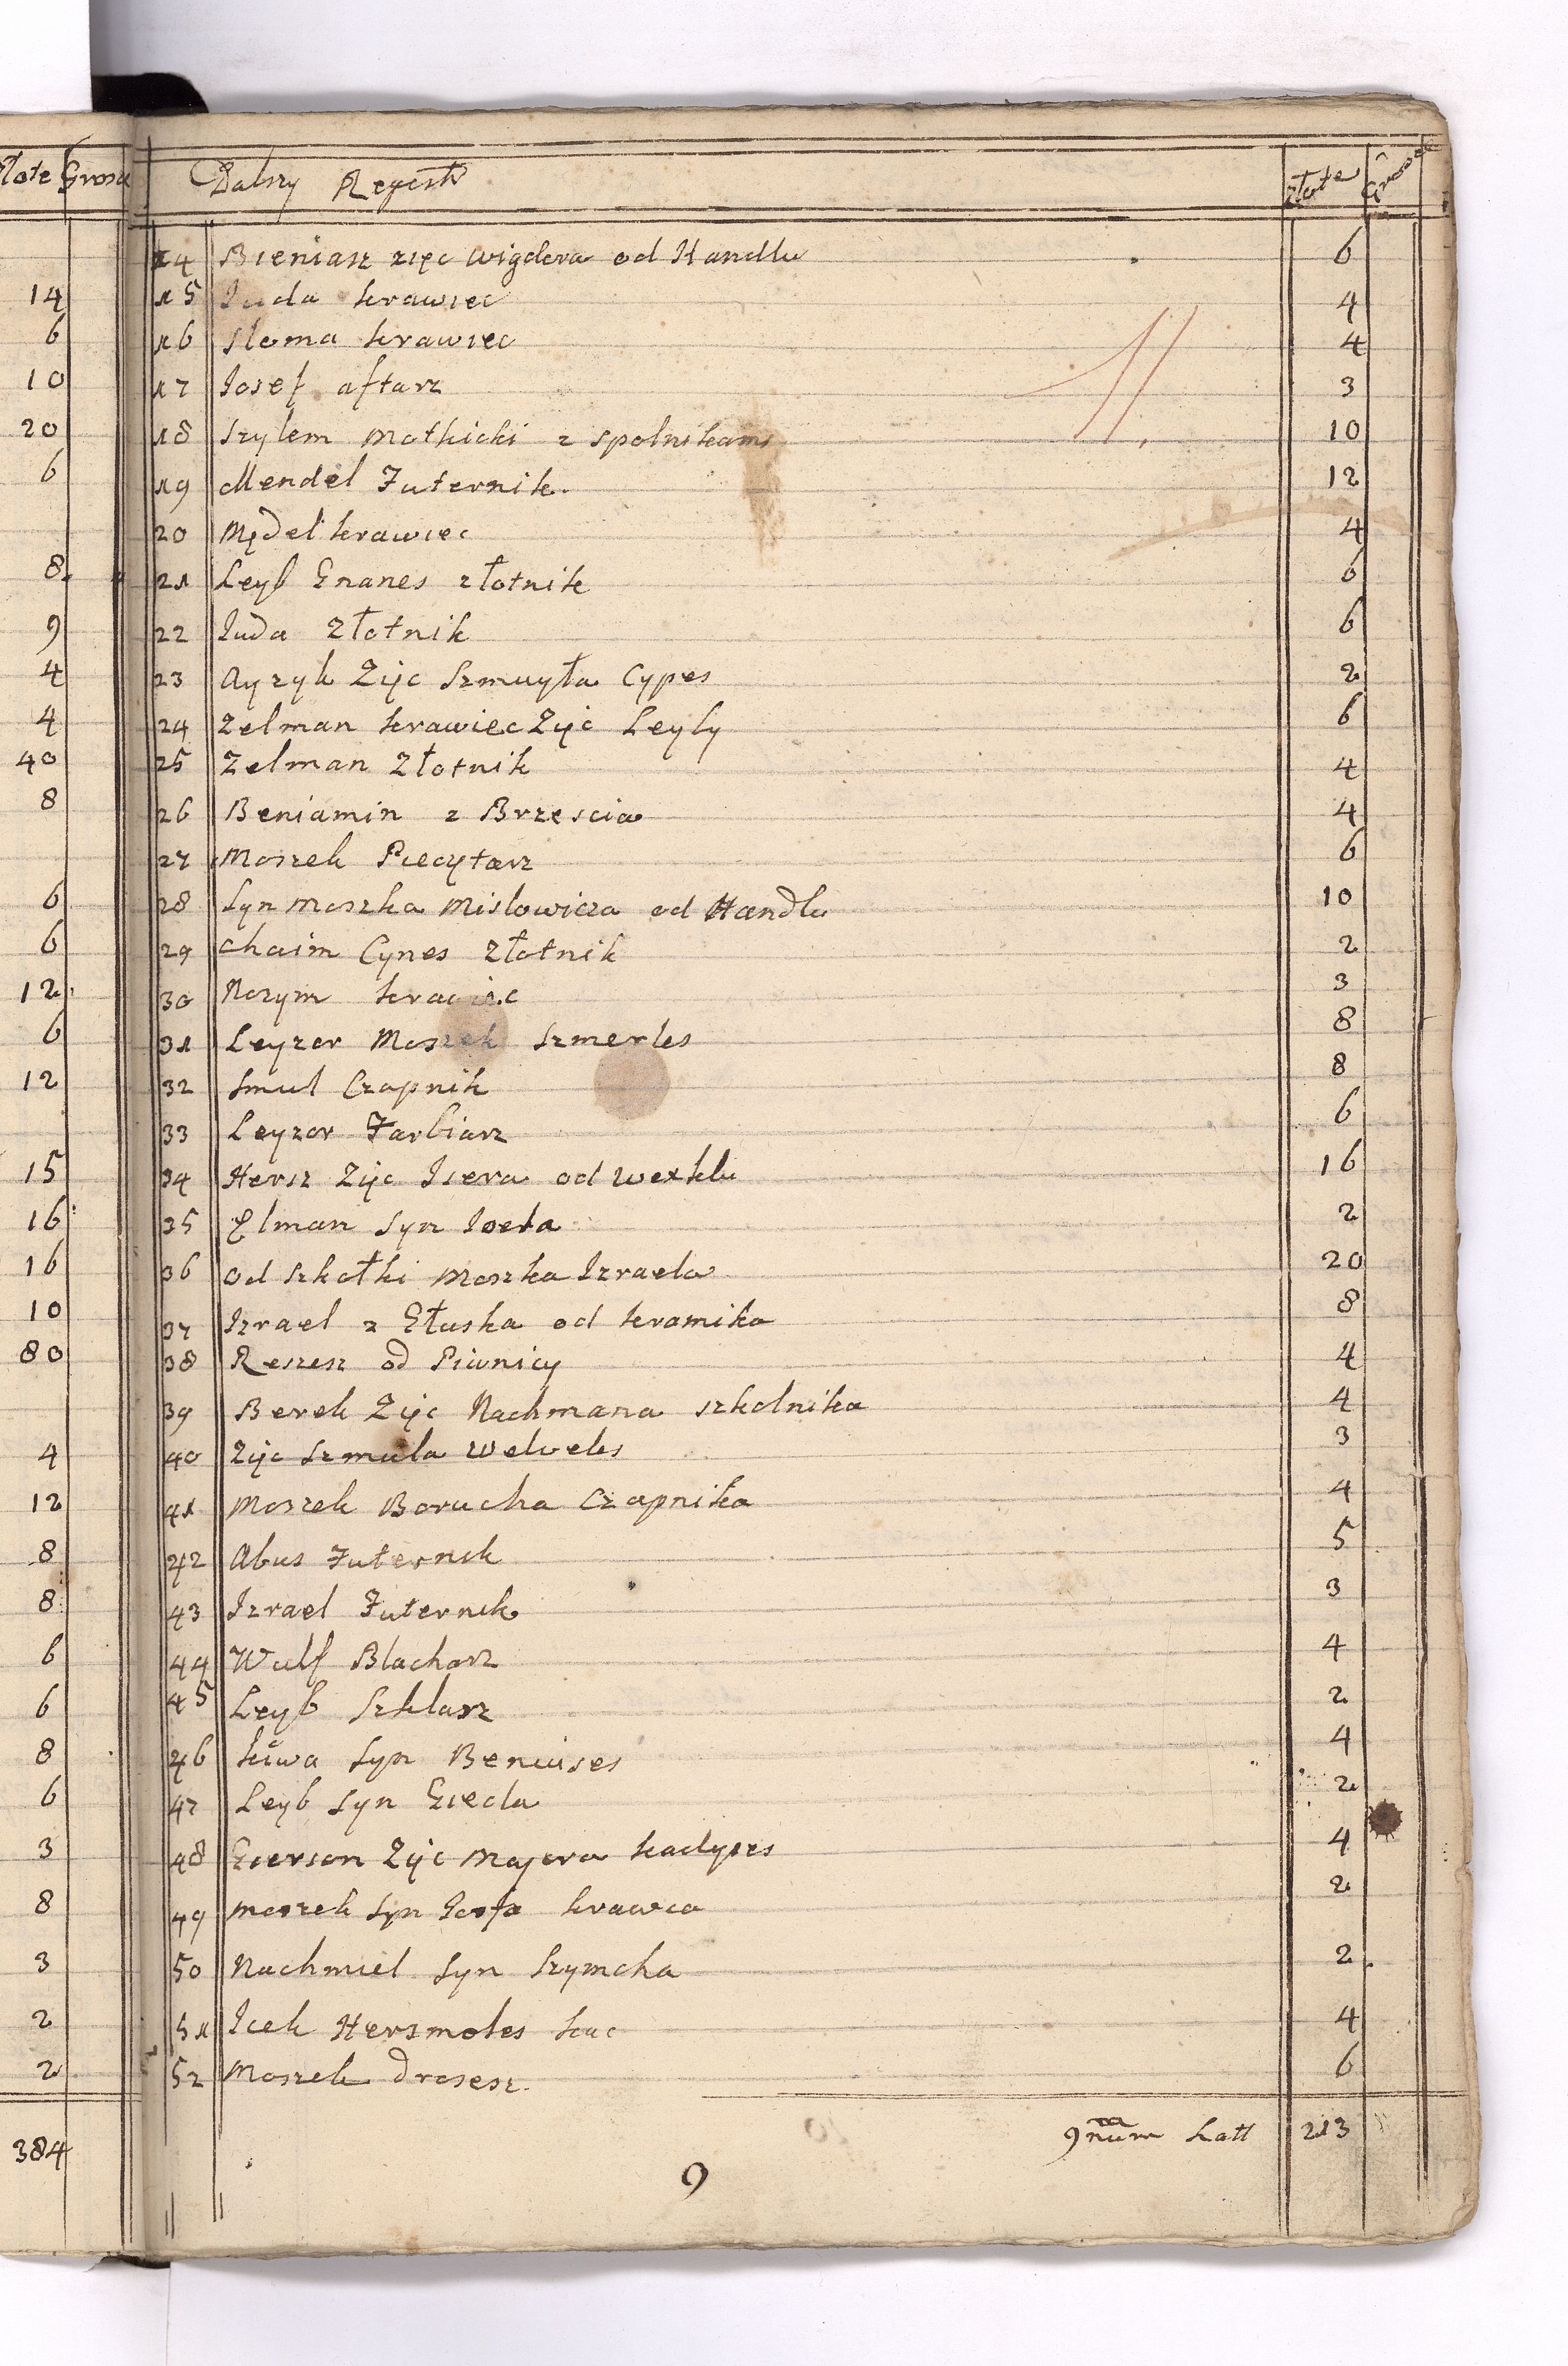 Złote Grosze
14
6
10
20
6
8.
9
4
4
40
8
6
6
12
6
12
15
16
16
10
80
4
12
8
8
6
6
8
6
3
8
3
2
2
384
Dalszy Regestr złote Grosze
11.
14 Bieniasz zięc Wigdora od Handlu 6
15 Juda krawiec 4
16 Sloma krawiec 4
17 Josef aftarz 3
18 Szylem Mothicki z spolnikami 10
19 Mendel Futernik. 12
20 Mędel krawiec 4
21 Leyb Gnanes złotnik 6
22 Juda Złotnik 6
23 Ayzyk Zięc Szmuyła Cypes 2
24 Zelman krawiec Zięc Leyby 6
25 Zelman Złotnik 4
26 Beniamin z Brzescia 4
27 Moszek Piecytarz 6
28 Syn Moszka Mislowicza od Handlu 10
29 Chaim Cynes Złotnik 2
30 Nozym krawiec 3
31 Leyzor Moszek Szmerles 8
32 Smul Czapnik 8
33 Leyzor Farbiarz 6
34 Hersz Zięc Isera od Wexklu 16
35 Elman Syn Joela 2
36 od Szkołki Moszka Izraela 20
37 Izrael z Głuska od kramika 8
38 Reszesz od Piwnicy 4
39 Berek Zięc Nachmana szkolnika 4
40 Zięc Szmula Welveles 3
41 Moszek Borucha Czapnika 4
42 Abus Futernik 5
43 Izrael Futernik 3
44 Wulf Blacharz 4
45 Leyb Szklarz 2
46 kiwa Syn Beniases 4
47 Leyb Syn Giecla 2
48 Gierson Zięc Majera kadyszes 4
49 Moszek Syn Josfa krawca 2
50 Nachmiel Syn Szymcha 2.
51 Icek Hersmoles 4
52 Moszek drosesz. 6
Latt 213
9